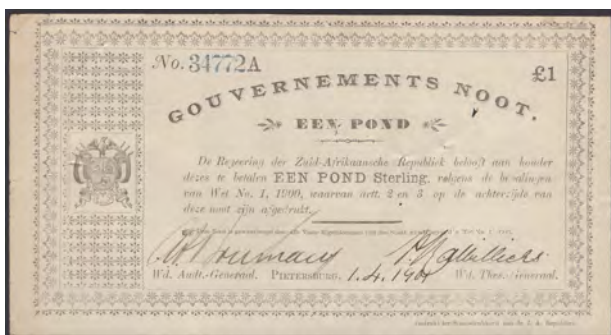 No. 34772A
£1
GOUVERNEMENTS NOOT.
EEN POND
De Regeering der Zuid-Afrikaansche Republiek belooft aan houder
dezes te betalen EEN POND Sterling, volgens de bepalingen
van Wet No. 1, 1900, waarvan artt. 2 en 3 op de achterzijde van
deze noot zijn afgedrukt.
Wd. Audt.-Generaal. PIETERSBURG, 1.4.1901 Wd. Thes.-Generaal.